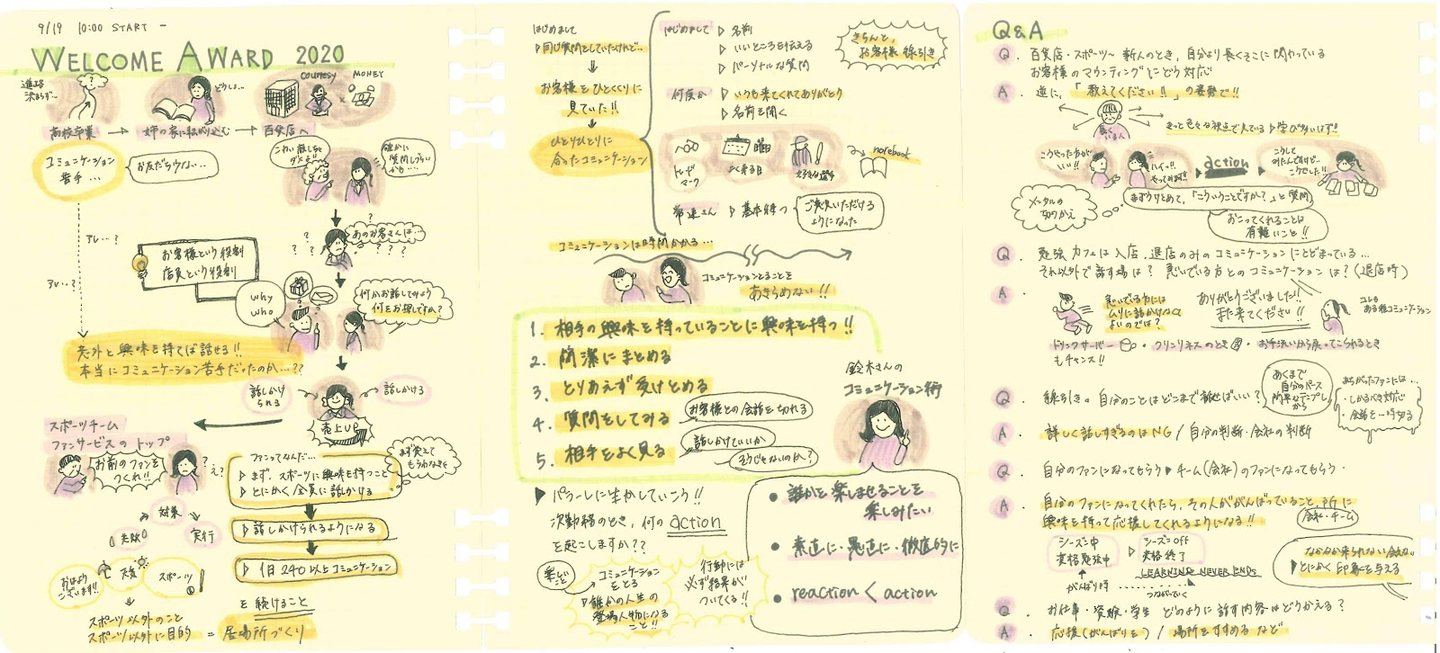 9/19 10:00 START ー
WELCOME AWARD 2020
進路
決まらず…
どうしよ…
courtesy
MONEY
高校卒業 → 姉の家に転がり込む → 百貨店へ
コミュニケーション
苦手…
お友だち少ない…
これ、誰しもダメよ
確かに
質問しづらい
かも…
アレ…?
アレ…?
?
あのお客さんは…
? ? ? ?
お客様という役割
店員という役割
why
who
何かお話してみよう
何をお探しですか?
意外と興味を持てば話せる!!
本当にコミュニケーション苦手だったのか…??
話しかけ
られる
話しかける
売上UP
スポーツチーム
ファンサービスのトップ
お前のファンを
つくれ!!
? え?
まず覚えて
もらわなきゃ
ファンってなんだ…
▷ まず、スポーツに興味を持つこと
▷ とにかく全員に話しかける
▷ 話しかけられるようになる
▷ 1日240以上コミュニケーション
対策
失敗
実行
おはよう
ございます!!
天気
スポーツ
!
スポーツ以外のこと
スポーツ以外に目的
を続けること
= 居場所づくり
はじめまして
▷ 同じ質問をしていたけれど…
お客様をひとくくりに
見ていた!!
ひとりひとりに
合ったコミュニケーション
はじめまして ▷ 名前
▷ いいところを伝える
▷ パーソナルな質問
きちんと、
お客様線引き
何度か ▷ いつも来てくれてありがとう
▷ 名前を聞く
トレード
マーク
よく来る日
好きな選手
notebook
常連さん ▷ 基本待つ
ご意見いただける
ようになった
コミュニケーションは時間かかる…
コミュニケーションとることを
あきらめない!!
1. 相手の興味を持っていることに興味を持つ!!
2. 簡潔にまとめる
3. とりあえず受けとめる
4. 質問をしてみる
お客様との会話を切れる
5. 相手をよく見る
話しかけていいか
そうじゃないのか?
鈴木さんの
コミュニケーション術
▶ パラレルに生かしていこう!!
次勤務のとき、何の action
を起こしますか??
楽しい
こと
コミュニケーション
をとる
▷ 誰かの人生の
登場人物になる
こと!!
行動には
必ず結果が
ついてくる!!
● 誰かを楽しませることを
楽しみたい
● 素直に・愚直に・徹底的に
● reaction < action
Q&A
Q. 百貨店・スポーツ〜 新人のとき、自分より長くそこに関わっている
お客様のマウンティングにどう対応
A. 逆に、「教えてください!!」の姿勢で!!
長く
いる人
きっと色々な視点で見ている ▷ 学び多いはず!!
こうやった方が
いい!!
ハイッ!!
やってみます!!
▶ action ▶
こうして
みたんですけどー
こうでした!!
メンタルの
切りかえ
まずうけとめて、「こういうことですか?」と質問
おこってくれることは
有難いこと!!
Q. 勉強カフェは入店、退店のみのコミュニケーションにとどまっている…
それ以外で話す場は? 急いでいる方とのコミュニケーションは?(退店時)
A.
急いでいる方には
ムリに話かけなくて
よいのでは?
ありがとうございました!!
また来てください!!
コレも
ある種コミュニケーション
ドリンクサーバー ・クリンリネスのとき ・お手洗いから戻ってこられるとき
もチャンス!!
Q. 線引き。自分のことはどこまで話せばいい?
あくまで
自分のペース
簡単なテンプレ
から
まちがったファンには…
・しかるべき対応
・会話を一時切る
A. 詳しく話しすぎるのはNG / 自分の判断・会社の判断
Q. 自分のファンになってもらう ▶ チーム(会社)のファンになってもらう・
A. 自分のファンになってくれたら、その人ががんばっていること、所に
興味を持って応援してくれるようになる!!
会社・チーム
シーズン中
資格勉強中
▷ シーズンOFF
資格終了
LEARNING NEVER ENDS
がんばり時
つなげていく
なかなか来られない会員さん
▷ とにかく印象を与える
Q. お仕事・受験・学生 どのように話す内容はどうかえる?
A. 応援(がんばりを) / 場所をすすめる など